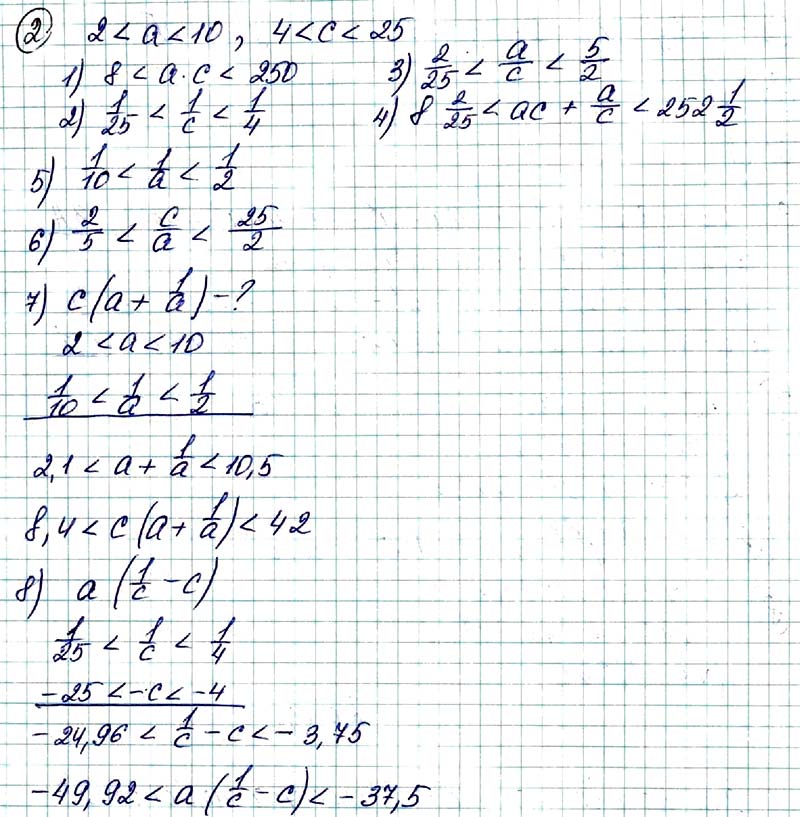 ② 2 < a < 10, 4 < c < 25
1) 8 < a · c < 250
2) 1/25 < 1/c < 1/4
3) 2/25 < a/c < 5/2
4) 8 2/25 < ac + a/c < 252 1/2
5) 1/10 < 1/a < 1/2
6) 2/5 < c/a < 25/2
7) c(a + 1/a) - ?
2 < a < 10
1/10 < 1/a < 1/2
2,1 < a + 1/a < 10,5
8,4 < c(a + 1/a) < 42
8) a(1/c - c)
1/25 < 1/c < 1/4
-25 < -c < -4
-24,96 < 1/c - c < -3,75
-49,92 < a(1/c - c) < -37,5